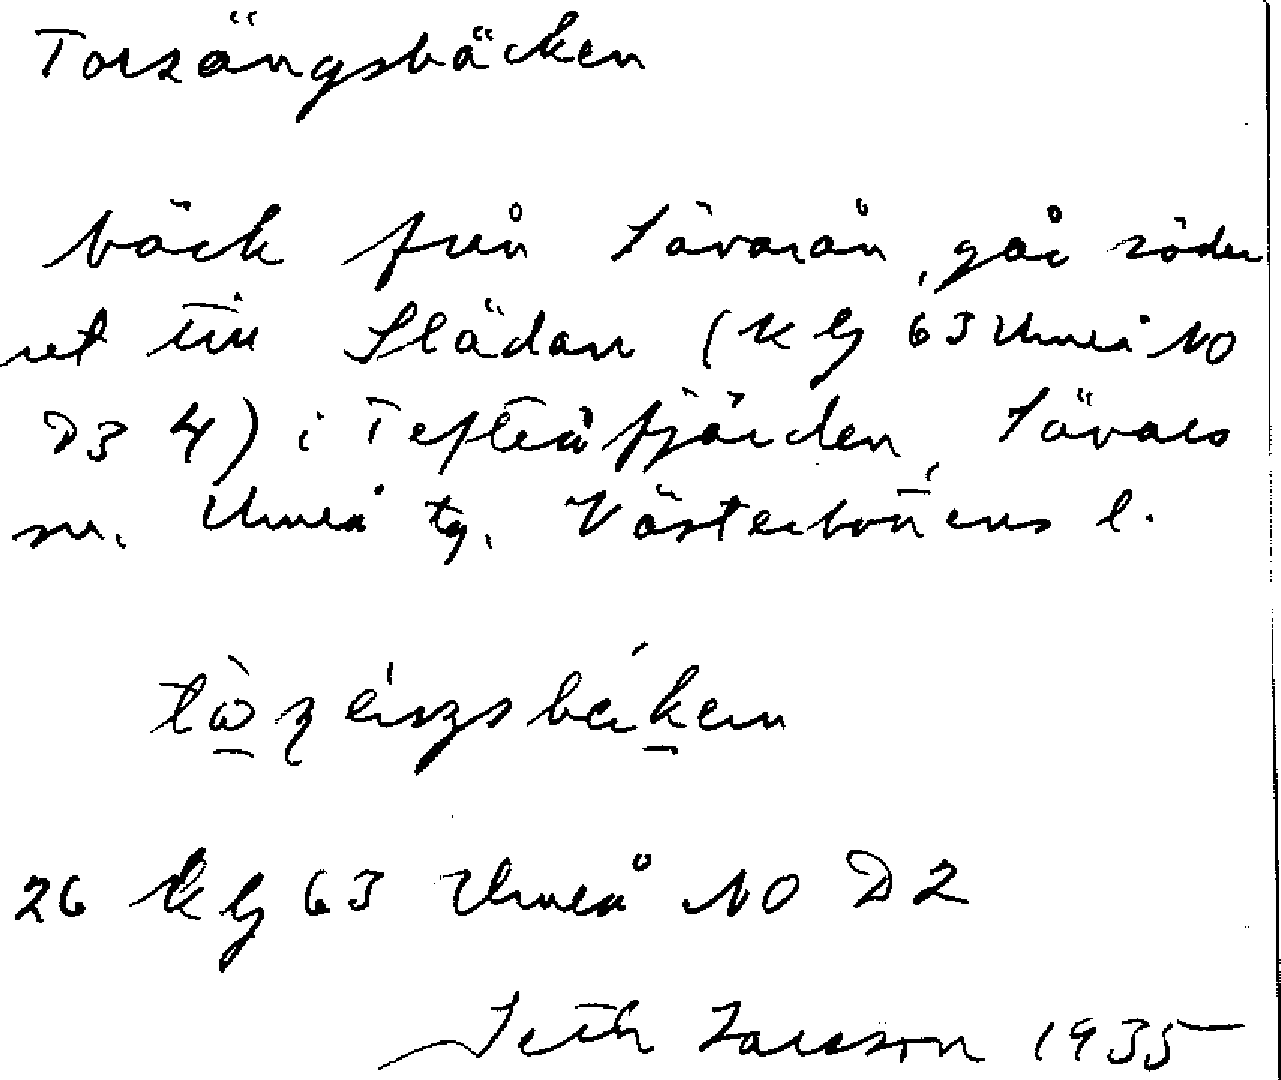 Torsängsbäcken
bäck från Sävarån, går söder
ut till Slädan (K bl 63 Umeå NO
D3 4) i Tefteåfjärden, Sävars
sn. Umeå tg. Västerbottens l.
26 K bl 63 Umeå NO D2
Seth Larsson 1935